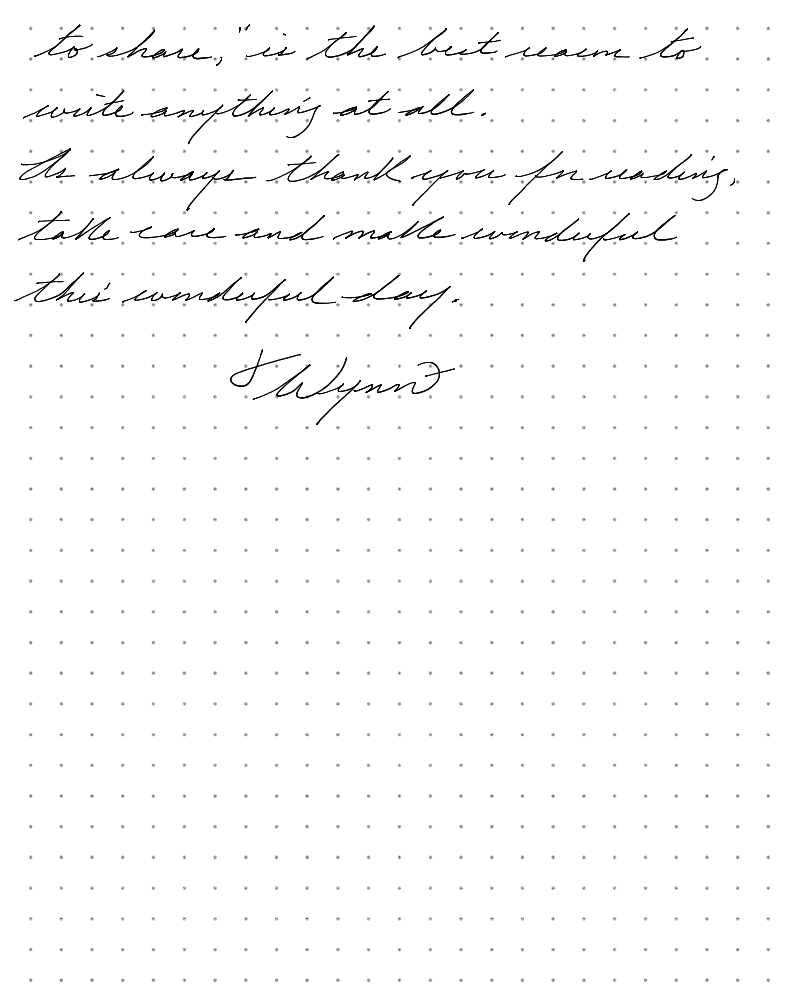 to share," is the best reason to
write anything at all.
As always thank you for reading,
take care and make wonderful
this wonderful day.
Wynn